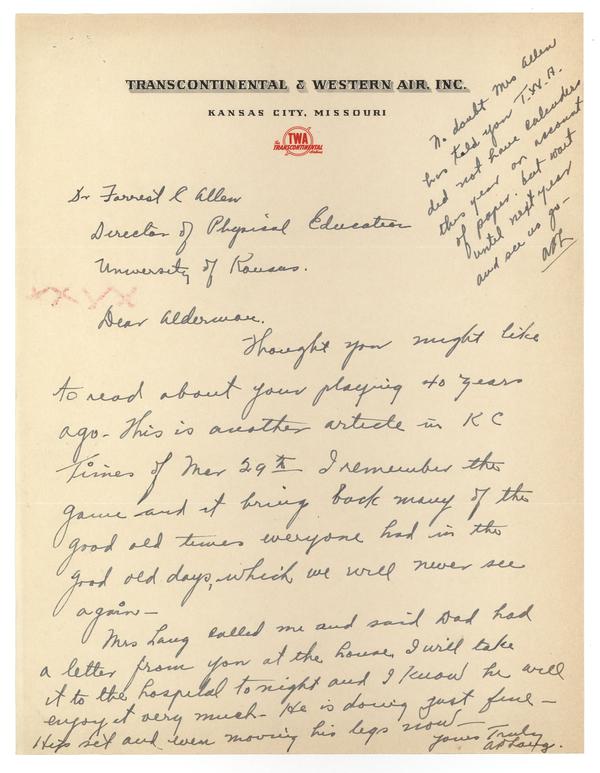 TRANSCONTINENTAL & WESTERN AIR, INC.
KANSAS CITY, MISSOURI
TWA
TRANSCONTINENTAL
No doubt Mrs Allen
has told you T.W.A.
did not have calenders
this year on account
of paper. but wait
until next year
and see us go-
Dr Forrest C Allen
Director of Physical Education
University of Kansas.
XXVX
Dear Alderman.
Thought you might like
to read about your playing 40 years
ago - This is another article in K C
Times of Mar 29th I remember the
game and it bring back many of the
good old times everyone had in the
good old days, which we will never see
again -
Mrs Laug called me and said Dad had
a letter from you at the house. I will take
it to the hospital tonight and I know he will
enjoy it very much - He is doing just fine -
Hips set and even moving his legs now -
Yours Truly